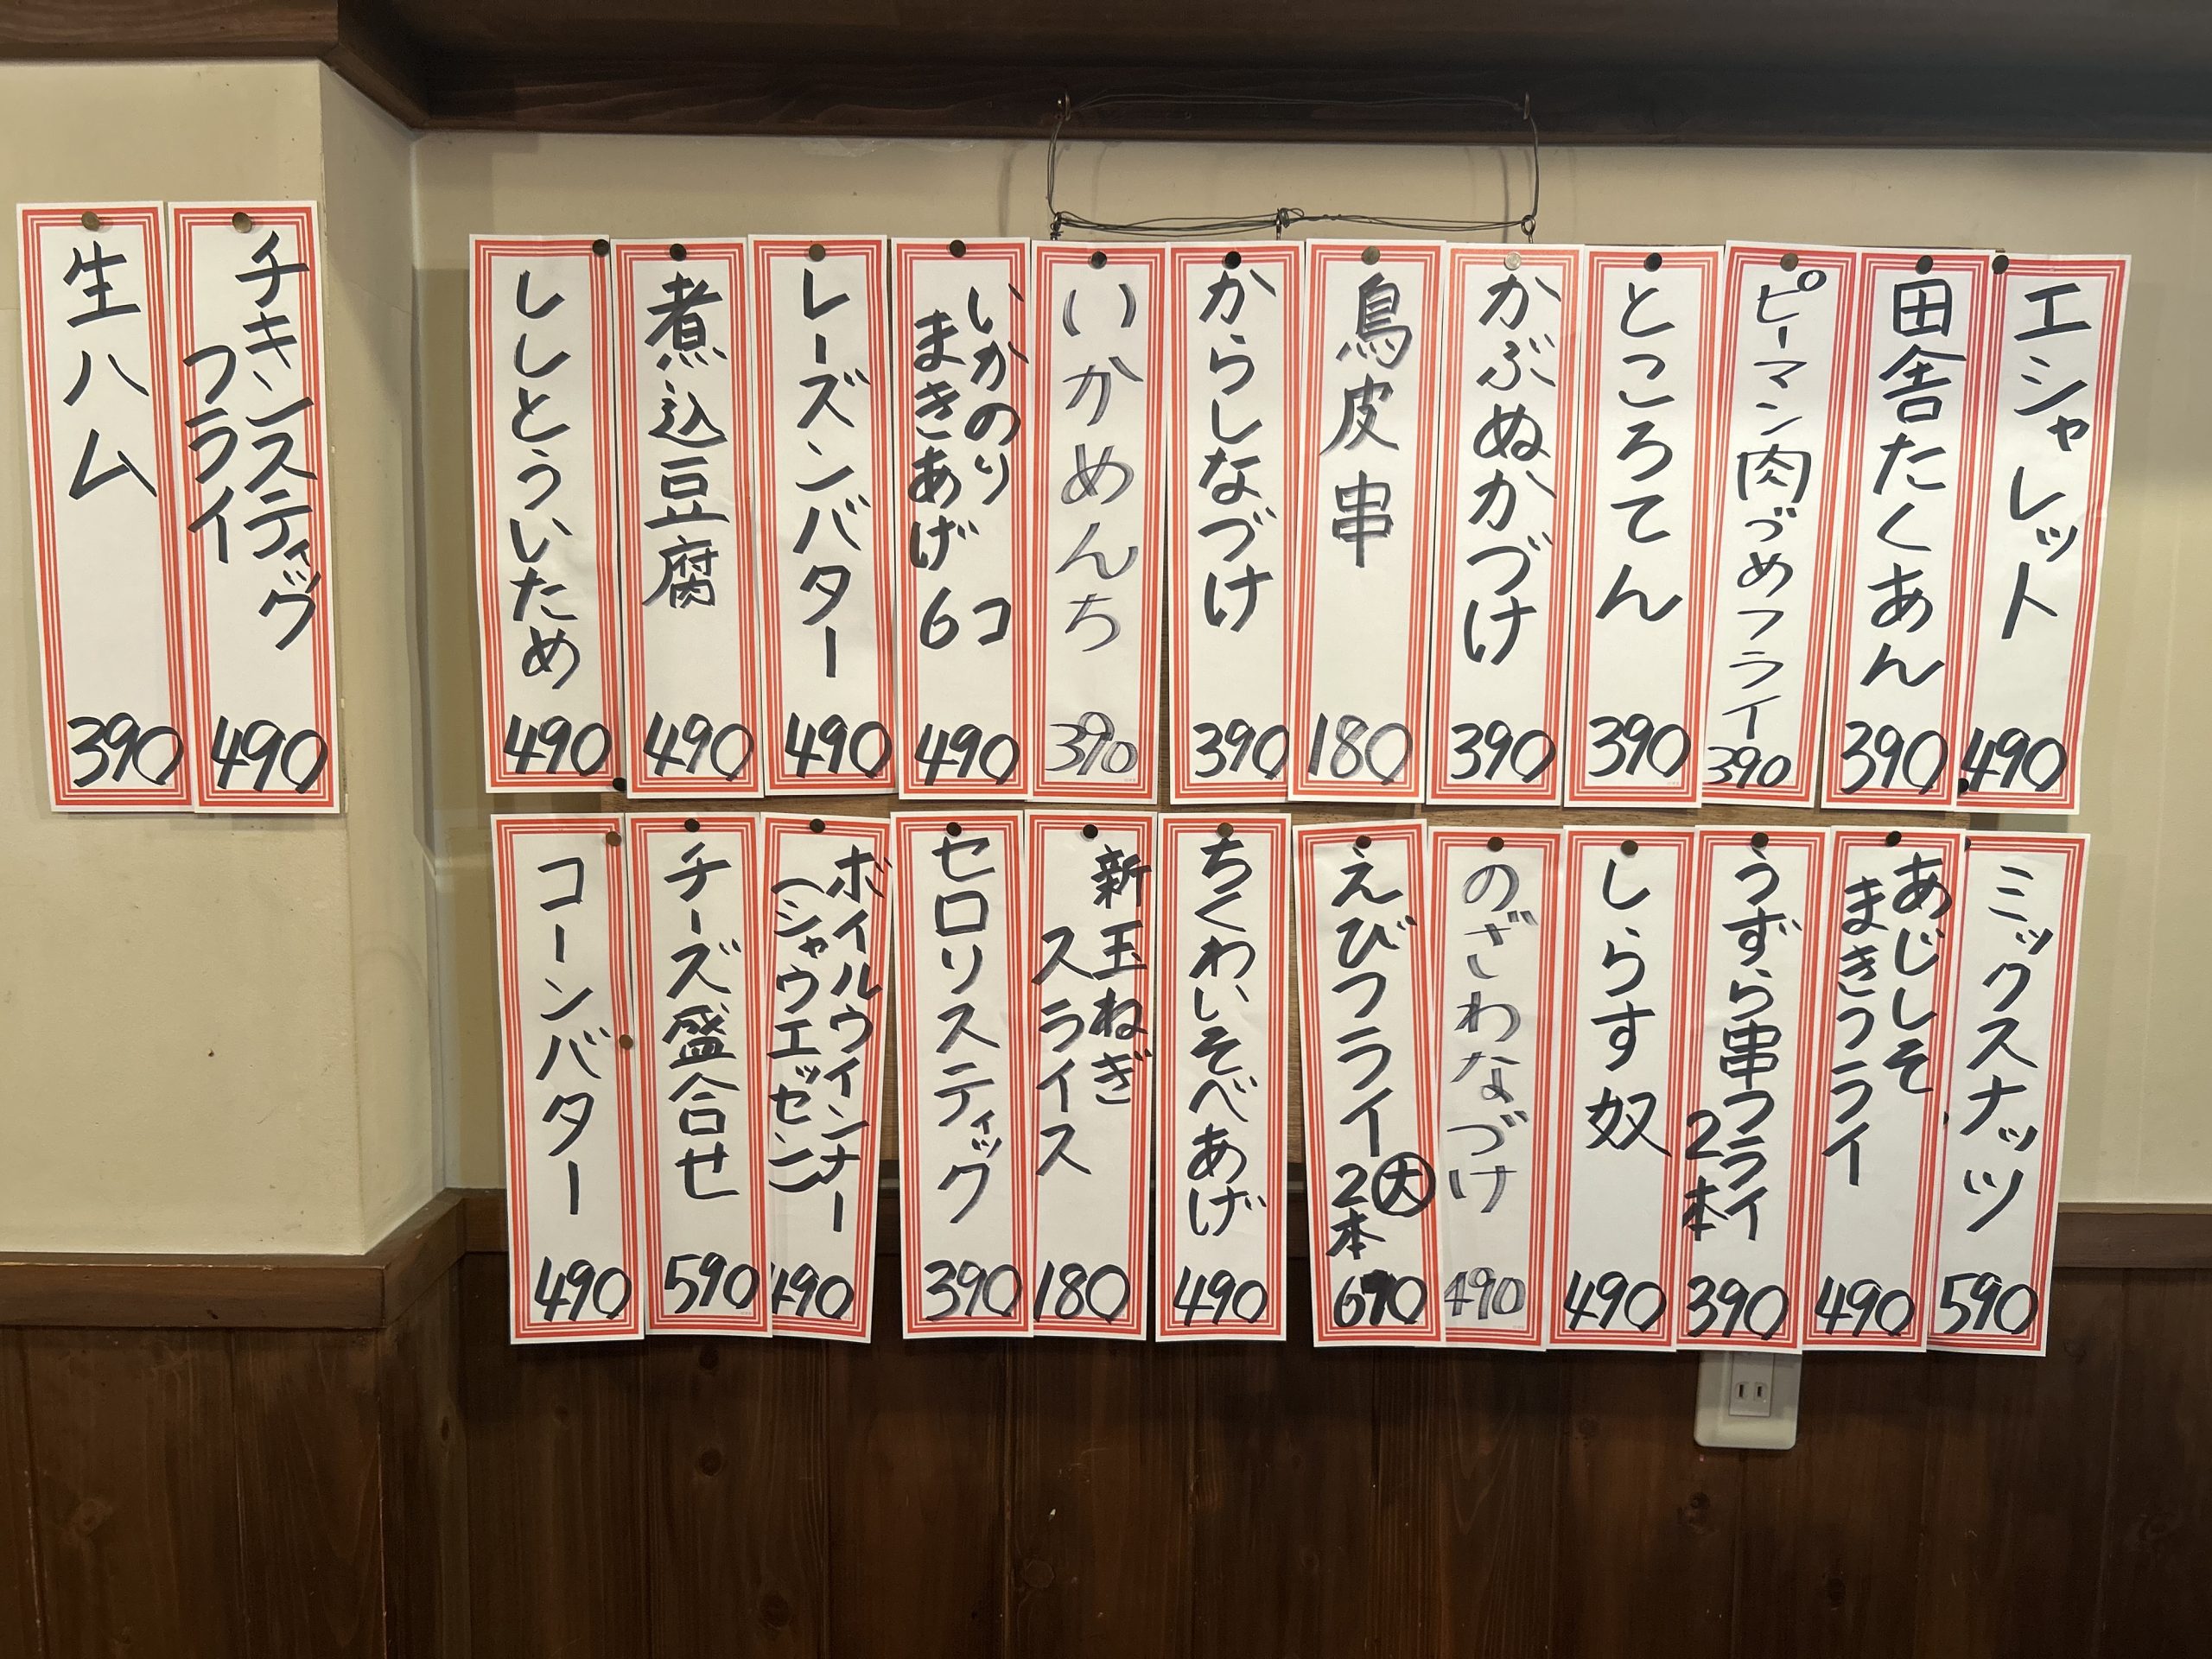 エシャレット
490
田舎たくあん
390
ピーマン肉づめフライ
390
ところてん
390
かぶぬかづけ
390
鳥皮串
180
からしなづけ
390
いかめんち
390
いかのり
まきあげ
6コ
490
レーズンバター
490
煮込豆腐
490
ししとういため
490
チキンスティック
フライ
490
生ハム
390
ミックスナッツ
590
あじしそ
まきフライ
490
うずら串フライ
2本
390
しらす奴
490
のざわなづけ
490
えびフライ大
2本
690
ちくわいそべあげ
490
新玉ねぎ
スライス
180
セロリスティック
390
ボイルウインナー
(シャウエッセン)
490
チーズ盛合せ
590
コーンバター
490